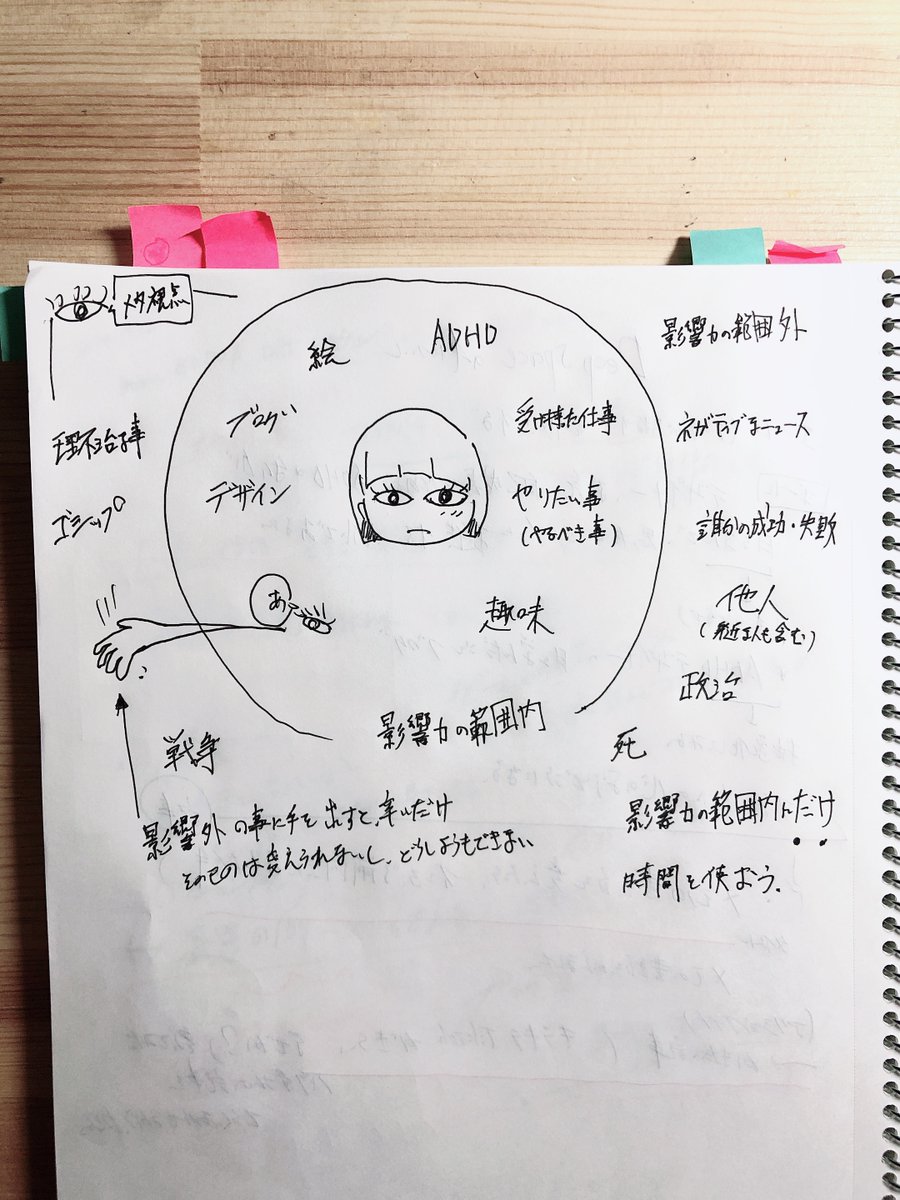 メタ視点
絵
ADHD
影響力の範囲外
ブログ
受け持った仕事
ネガティブなニュース
理不尽な事
デザイン
やりたい事
(やるべき事)
誰かの成功・失敗
ゴシップ
あ
趣味
他人
(身近な人も含む)
政治
影響力の範囲内
死
戦争
影響力の範囲内にだけ
時間を使おう.
影響外の事に手を出すと、辛いだけ
そのものは変えられないし、どうしようもできない